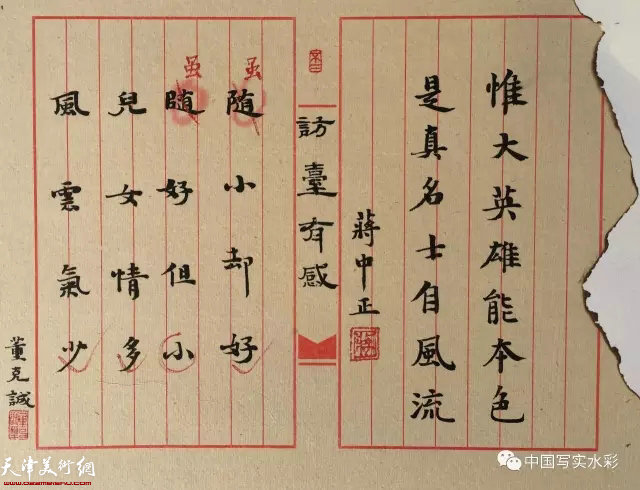 惟大英雄能本色
是真名士自風流
蔣中正
訪臺有感
虽
随小却好
虽
随好但小
兒女情多
風雲氣少
董克誠
天津美術網
中国写实水彩